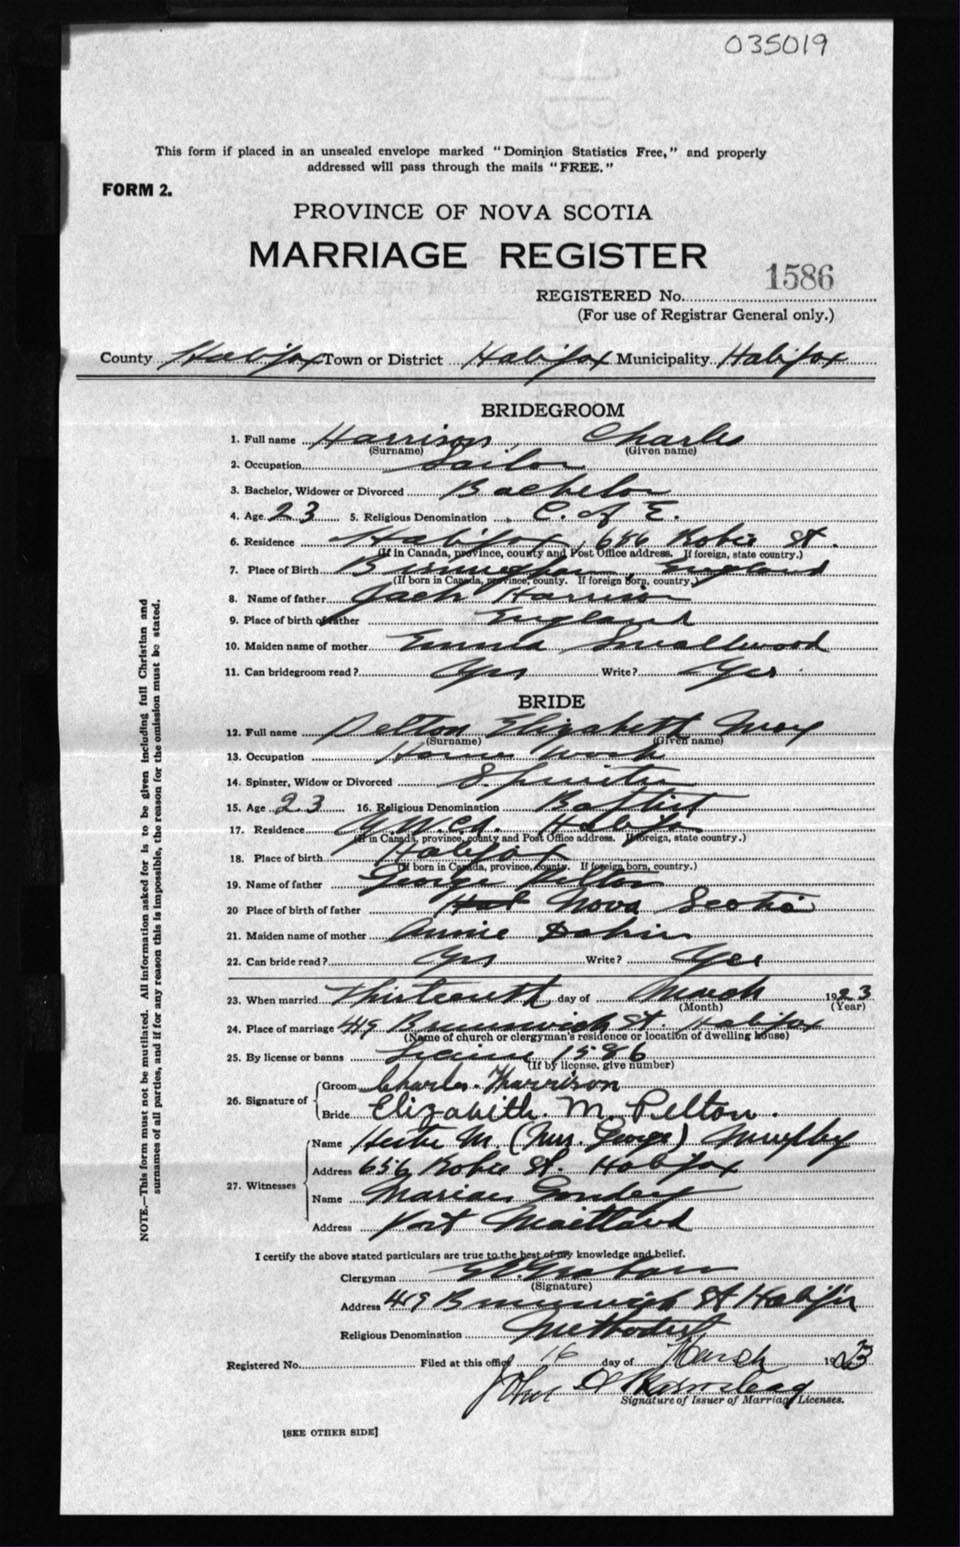 035019
This form if placed in an unsealed envelope marked "Dominion Statistics Free," and properly
addressed will pass through the mails "FREE."
FORM 2.
PROVINCE OF NOVA SCOTIA
MARRIAGE REGISTER
1586
REGISTERED No.
(For use of Registrar General only.)
County Halifax Town or District Halifax Municipality Halifax
BRIDEGROOM
1. Full name Harrison, Charles
(Surname) (Given name)
2. Occupation Sailor
3. Bachelor, Widower or Divorced Bachelor
4. Age 23 5. Religious Denomination C. of E.
6. Residence Halifax, 656 Robie St.
(If in Canada, province, county and Post Office address. If foreign, state country.)
7. Place of Birth England
(If born in Canada, province, county. If foreign born, country.)
8. Name of father Jack Harrison
9. Place of birth of father England
10. Maiden name of mother Emma Smallwood
11. Can bridegroom read? Yes Write? Yes
BRIDE
12. Full name Pelton Elizabeth May
(Surname) (Given name)
13. Occupation House work
14. Spinster, Widow or Divorced Spinster
15. Age 23 16. Religious Denomination Baptist
17. Residence Y.W.C.A. Halifax
(If in Canada, province, county and Post Office address. If foreign, state country.)
18. Place of birth Halifax
(If born in Canada, province, county. If foreign born, country.)
19. Name of father George Pelton
20 Place of birth of father Nova Scotia
21. Maiden name of mother Annie
22. Can bride read? Yes Write? Yes
23. When married Thirteenth day of March 1923
(Month) (Year)
24. Place of marriage 419 Brunswick St. Halifax
(Name of church or clergyman's residence or location of dwelling house)
25. By license or banns License 1586
(If by license, give number)
26. Signature of Groom Charles Harrison
Bride Elizabeth. M. Pelton.
27. Witnesses Name M. (Mrs. George)
Address 656 Robie St. Halifax
Name Marian
Address Port Maitland
I certify the above stated particulars are true to the best of my knowledge and belief.
Clergyman Graham
(Signature)
Address 419 Brunswick St Halifax
Religious Denomination Methodist
Registered No. Filed at this office 16 day of March 1923
John
Signature of Issuer of Marriage Licenses.
[SEE OTHER SIDE]
NOTE.—This form must not be mutilated. All information asked for is to be given including full Christian and
surnames of all parties, and if for any reason this is impossible, the reason for the omission must be stated.